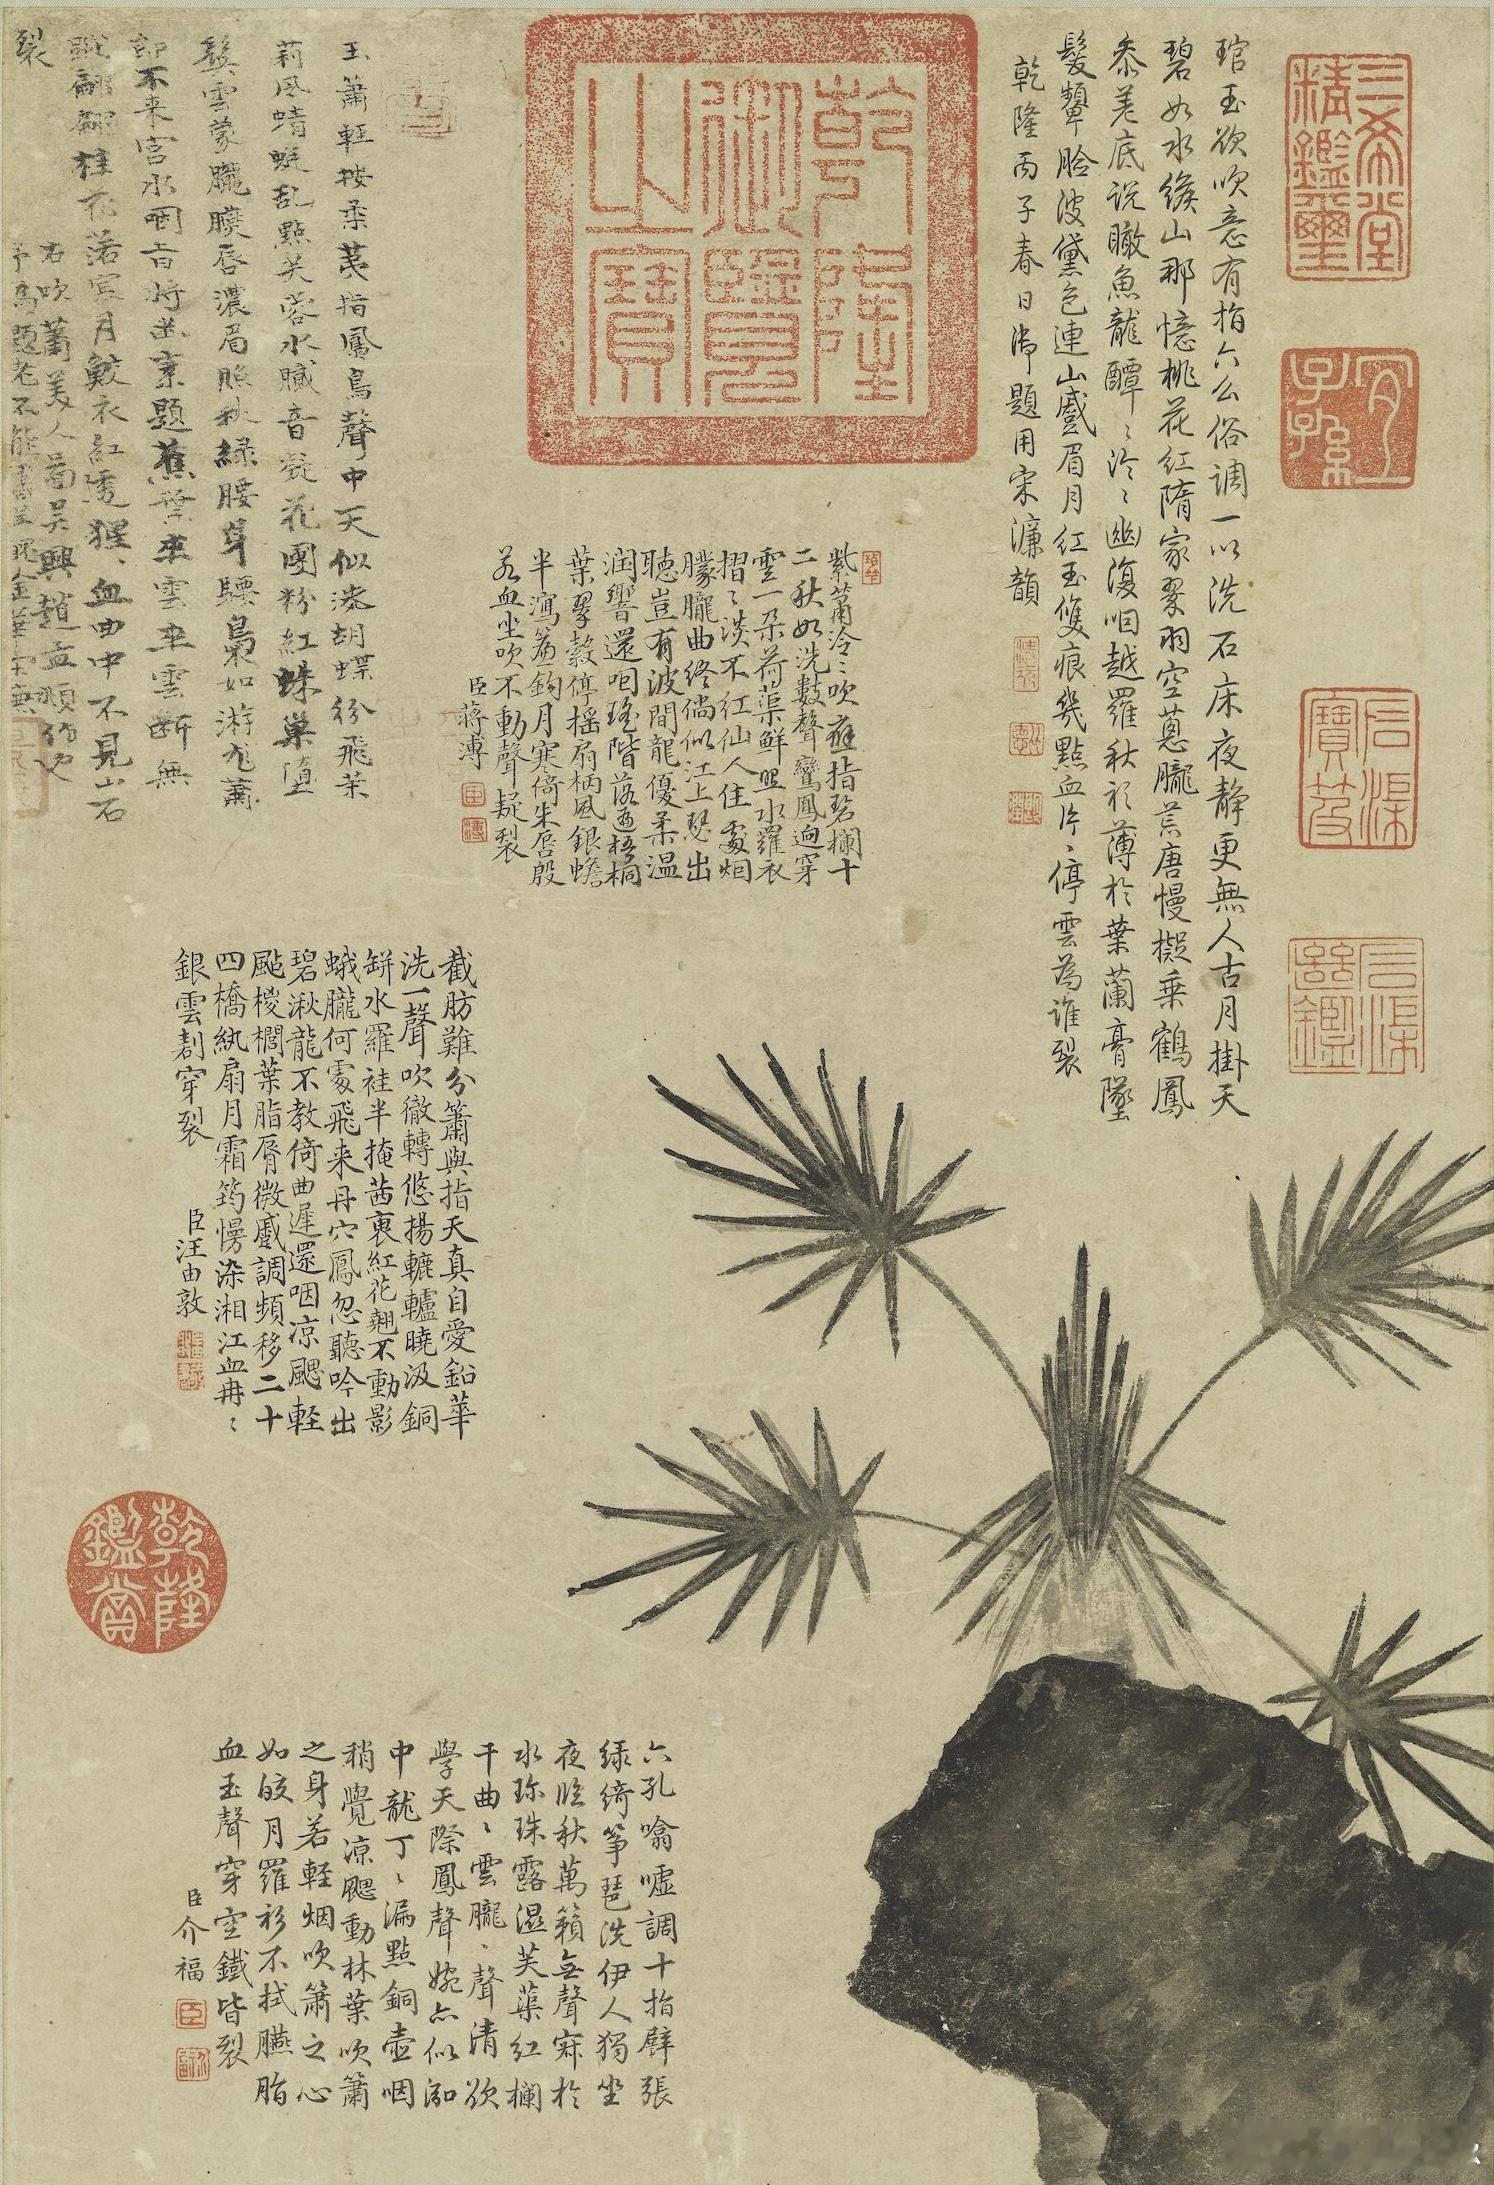 三希堂精鑑璽
宜子孫
石渠寶笈
石渠繼鑑
琯玉欲吹意有指六么俗調一以洗石床夜靜更無人古月掛天
碧如水緱山那憶桃花紅隋家翠羽空蔥朧荒唐慢擬乘鶴鳳
忝差底說瞰魚龍醰〻泠〻幽復咽越羅秋衫薄於葉蘭膏墜
髮顰臉波黛色連山蹙眉月紅玉雙痕幾點血片〻停雲為誰裂
乾隆丙子春日御題用宋濂韻
乾隆御覽之寶
紫簫泠〻吹應指碧欄十
二秋如洗數聲鸞鳳迥穿
雲一朶荷蕖鮮照水羅衣
摺〻淡不紅仙人住處烟
朦朧曲終倘似江上瑟出
聽豈有波間龍優柔溫
潤響還咽瑤階落遍梧桐
葉翠縠停搖扇柄風銀蟾
半瀉簾鉤月寒倚朱唇殷
若血坐吹不動聲疑裂
臣蔣溥
玉簫輕按柔荑指鳳鳥聲中天似洗胡蝶紛飛茉
莉風蜻蜓乱點芙蓉水膩音凝花團粉紅蛛巢墮
鬢雲蒙朧朦唇濃眉照秋綠腰身騕裊如游龙蕭
郎不来宮水咽旨將幽素題蕉葉車雲車雲斷無
蹤翩翩桂花落寅月鮫衣紅透猩〻血曲中不見山石
裂
右吹簫美人圖吴興趙孟頫作也
截肪難分簫與指天真自愛鉛華
洗一聲吹徹轉悠揚轆轤曉汲銅
缾水羅袿半掩茜裏紅花翹不動影
蛾朧何處飛来丹穴鳳忽聽吟出
碧湫龍不教倚曲遲還咽凉颸輕
颭椶櫚葉脂脣微蹙調頻移二十
四橋紈扇月霜筠愕染湘江血冉〻
銀雲剨穿裂
臣汪由敦
乾隆鑑賞
六孔噏噓調十指騈張
綠綺箏琶洗伊人獨坐
夜臨秋萬籟無聲寂於
水珎珠露濕芙蕖紅欄
干曲〻雲朧〻聲清欲
學天際鳳聲婉亦似泓
中龍丁〻漏點銅壺咽
稍覺凉颸動林葉吹簫
之身若輕烟吹簫之心
如皎月羅衫不拭臙脂
血玉聲穿空鐵皆裂
臣介福